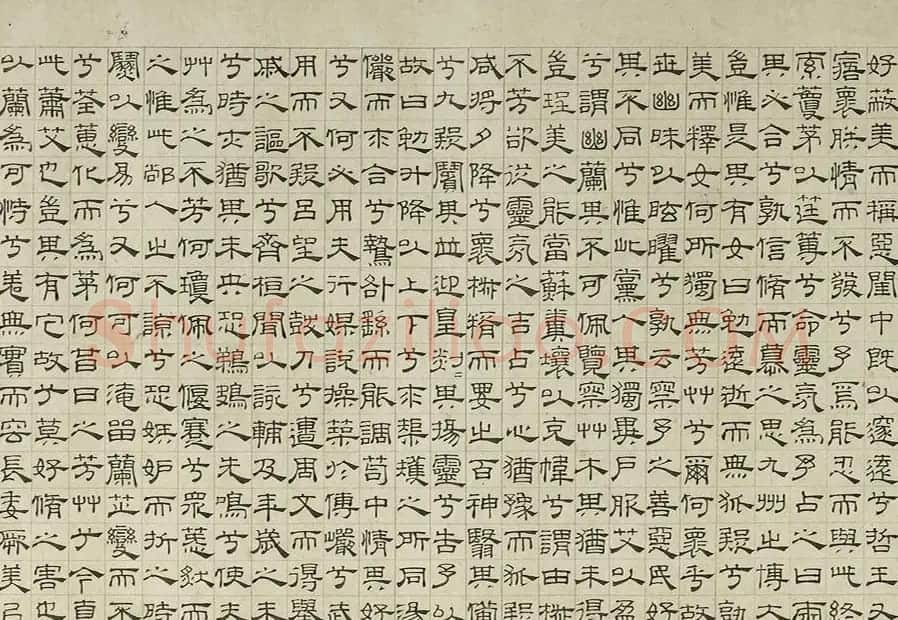 好蔽美而稱惡閨中既以邃遠兮哲王又
寤褱朕情而不發兮予焉能忍而與此終
索藑茅以筳篿兮命靈氛為予占之曰兩
其必合兮孰信脩而慕之思九州之博大
豈惟是其有女曰勉遠逝而無狐疑兮孰
美而釋女何所獨無芳艸兮爾何褱乎故
世幽昧以眩曜兮孰云察予之善惡民好
其不同兮惟此黨人其獨異戶服艾以盈
兮謂幽蘭其不可佩覽察艸木其猶未得
豈珵美之能當蘇糞壤以充幃兮謂申椒
不芳欲從靈氛之吉占兮心猶豫而狐疑
咸將夕降兮褱椒糈而要之百神翳其備
兮九疑繽其並迎皇剡=其揚靈兮告予以
故曰勉升降以上下兮求榘矱之所同湯
儼而求合兮摯咎繇而能調苟中情其好
兮又何必用夫行媒說操築於傅巖兮武
用而不疑呂望之鼓刀兮遭周文而得舉
戚之謳歌兮齊桓聞以該輔及年歲之未
兮時亦猶其未央恐鵜鴂之先鳴兮使夫
艸為之不芳何瓊佩之偃蹇兮眾薆然而
之惟此黨人之不諒兮恐嫉妒而折之時
繽以變易兮又何可以淹留蘭芷變而不
兮荃蕙化而為茅何昔日之芳艸兮今直
此蕭艾也豈其有它故兮莫好脩之害也
以蘭為可恃兮羌無實而容長委厥美以
Shufaziliao.COM